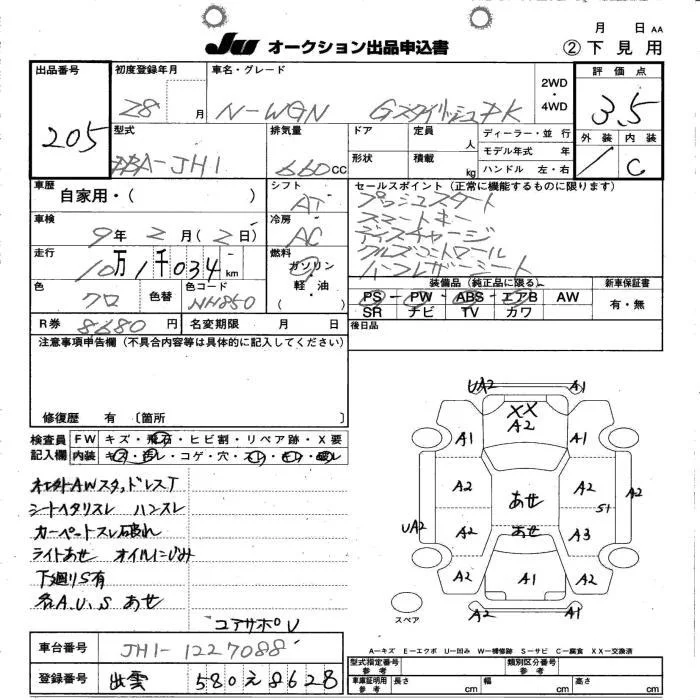 月 日 AA
JU オークション出品申込書 ②下見用
出品番号 205
初度登録年月 28 月
車名・グレード N-WGN Gスタイリッシュ PK
2WD・4WD
評価点 3.5
外装 内装 C
型式 DBA-JH1
排気量 660 cc
ドア 定員 人
形状 積載 kg
ディーラー・並行
モデル年式 年
ハンドル 左・右
車歴 自家用・( )
シフト AT
セールスポイント(正常に機能するものに限ります)
プッシュスタート
スマートキー
ディスチャージ
クルーズコントロール
ハーフレザーシート
車検 9年2月(2日)
冷房 AC
走行 10万1千034km
燃料 ガソリン・軽油 ( )
色 クロ 色替 色コード NH850
装備品(純正品に限る) 新車保証書
PS-PW-ABS-エアB AW 有・無
SR ナビ TV カワ
R券 8680円 名変期限 月 日
後日品
注意事項申告欄(不具合内容等は具体的に記入してください)
修復歴 有〔箇所 〕
検査員記入欄 FW キズ・飛石・ヒビ割・リペア跡・X要
内装 キズ・汚レ・コゲ・穴・スレ・ヨレ・破レ
オ社外AWスタッドレスT
シートヘタリスレ ハンスレ
カーペットスレ破れ
ライトあせ オイルにじみ
下廻りS有
各A.U.S あせ
コアサポU
UA2 A1
XX
A2
A1 A1
A2 あせ A2 A2
S1
UA2 A2 あせ A3
A2 A1 A2
A2 A1
スペア
A-キズ E-エクボ U-凹み W-補修跡 S-サビ C-腐食 XX-交換済
車台番号 JH1-1227088
登録番号 出雲 580 え 8628
型式指定番号 参考 類別区分番号 参考
車庫証明用 参考 長さ cm 幅 cm 高さ cm